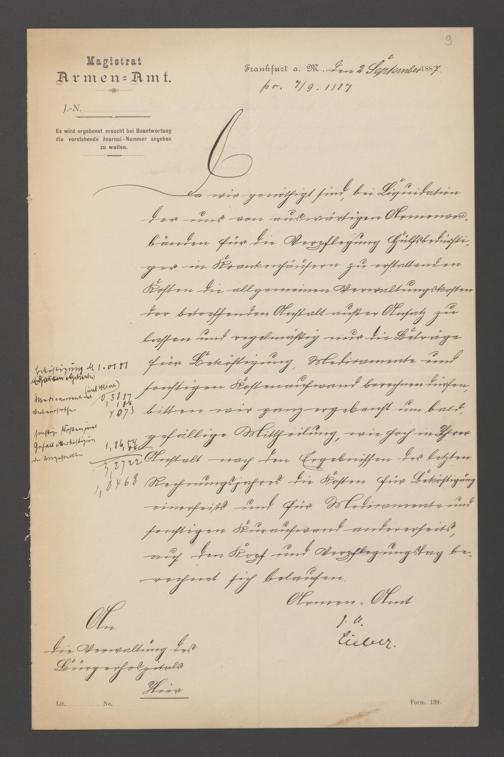 9
Magistrat
Armen=Amt.
Frankfurt a. M., den 2. September 1887.
pr. 7/9. 1887
J.-N.
Es wird ergebenst ersucht bei Beantwortung
die vorstehende Journal-Nummer angeben
zu wollen.
Da wir genöthigt sind, bei Liquidation
der uns von auswärtigen Armenver-
bänden für die Verpflegung Hülfsbedürfti-
ger in Krankenhäusern zu erstattenden
Kosten die allgemeinen Verwaltungskosten
der betreffenden Anstalt außer Ansatz zu
lassen und regelmäßig nur die Beträge
für Beköstigung, Medicamente und
sonstigen Kostenaufwand berechnen dürfen,
bitten wir ganz ergebenst um bald-
gefällige Mittheilung, wie hoch in Ihrer
Anstalt nach den Ergebnissen des letzten
Rechnungsjahres die Kosten für Beköstigung
einerseits und für Medicamente und
sonstigen Kuraufwand andererseits,
auf den Kopf und Verpflegungstag be-
rechnet sich belaufen.
Armen-Amt
J. A.
Beköstigung
Medicamente
1,8468
An
die Verwaltung des
Bürgerhospitals
Hier
Lit. No.
Form. 139.